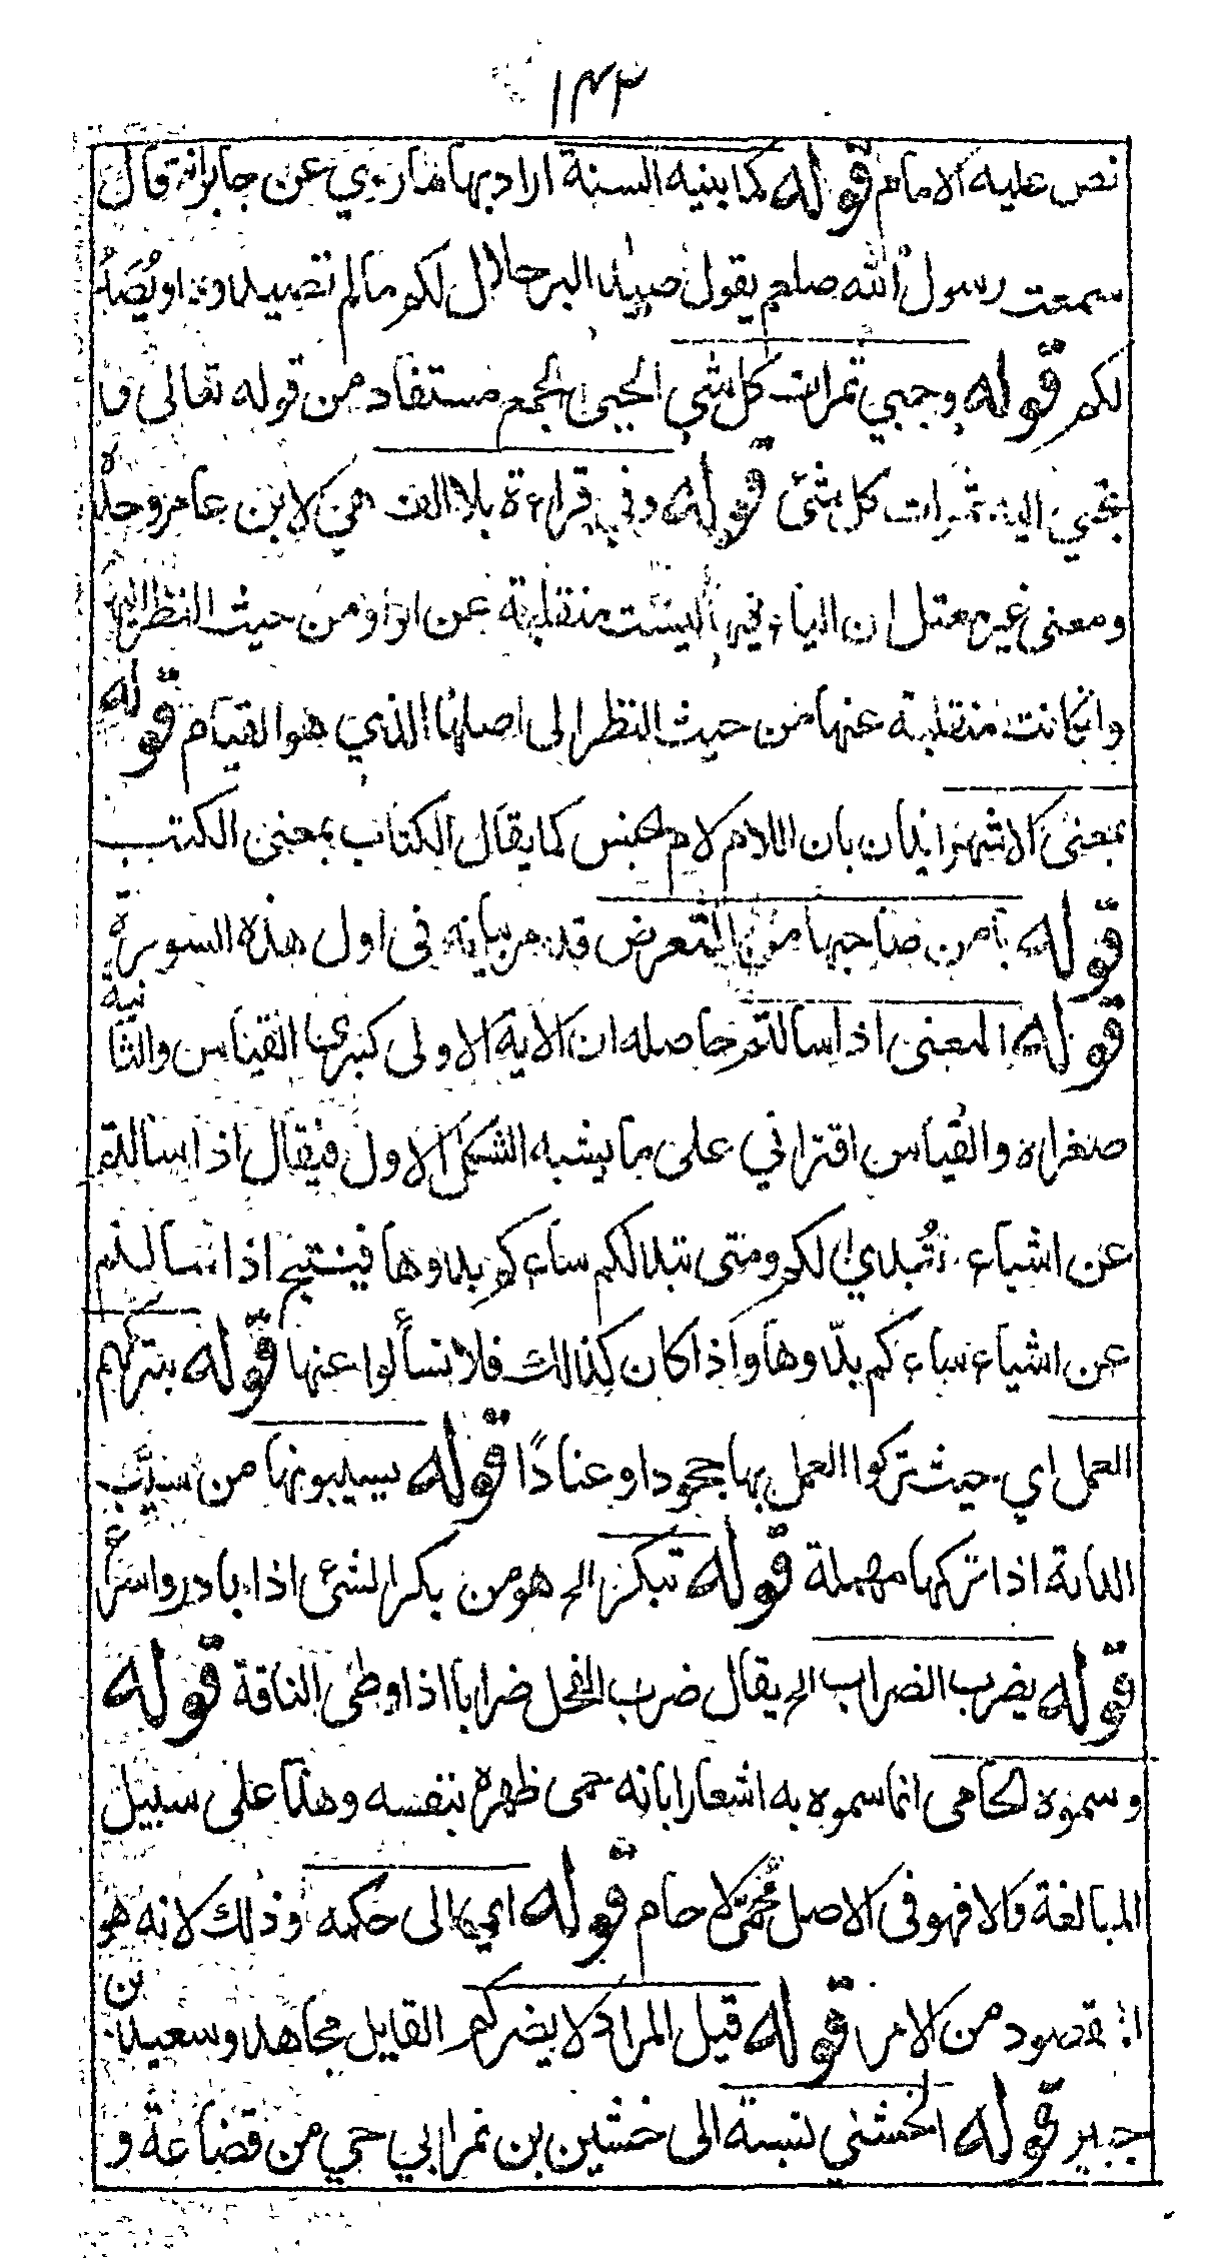 ١٤٣
نص عليه الامام قوله كما بنيه السنة اراد بها ما روي عن جابر انه قال
سمعت رسول الله صلعم يقول صيد البر حلال لكم مالم تصيدوه او يُصَدُ
لكم قوله وجببي ثمرات كل شي الخ الجمع مستفاد من قوله تعالى
يجبي اليه ثمرات كل شئ قوله وفي قراءة بلا الف هي لابن عامر وحده
ومعنى غير معتل ان الياء فيه ليست منقلبة عن الواو من حيث النظر اليه
وانكانت منقلبة عنها من حيث النظر الى اصلها الذي هو القيام قوله
بمعنى الاشهر ايذان بان اللام لام الجنس كما يقال الكتاب بمعنى الكتب
قوله بامن صاحبها من التعرض قد مر بيانه في اول هذه السورة
قوله المعنى اذا سالتم حاصله ان الاية الاولى كبرى القياس والثانية
صغراه والقياس اقتراني على ما يشبه الشكل الاول فيقال اذا سالتم
عن اشياء تُبدي لكم ومتى تبد لكم ساءكم بدوها فينتج اذا سالتم
عن اشياء ساءكم بدّوها واذا كان كذالك فلا تسألوا عنها قوله بتركهم
العمل اي حيث تركوا العمل بها جحودا وعنادًا قوله يسيبونها من سيَّب
الدابة اذا تركها مهملة قوله تبكر الخ هو من بكر الشئ اذا بادر واسرع
قوله يضرب الضراب الخ يقال ضرب الفحل ضرابا اذا وطئ الناقة قوله
وسموه الحامى انما سموه به اشعارا بانه حمى ظهره بنفسه وهذا على سبيل
المبالغة والا فهو فى الاصل مُحمّى لا حام قوله اي الى حكمه وذلك لانه هو
المقصود من الامر قوله قيل المراد لا يضركم القايل مجاهد وسعيد بن
جبير قوله الخشني نسبة الى خشين بن نمر ابي حي من قضاعة و